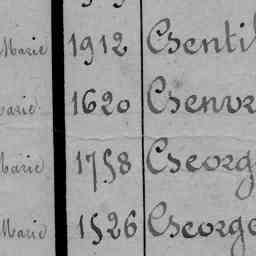 Marie 1912 Csenti
Marie 1620 Csenvr
Marie 1758 Cseorg
Marie 1526 Cseorge